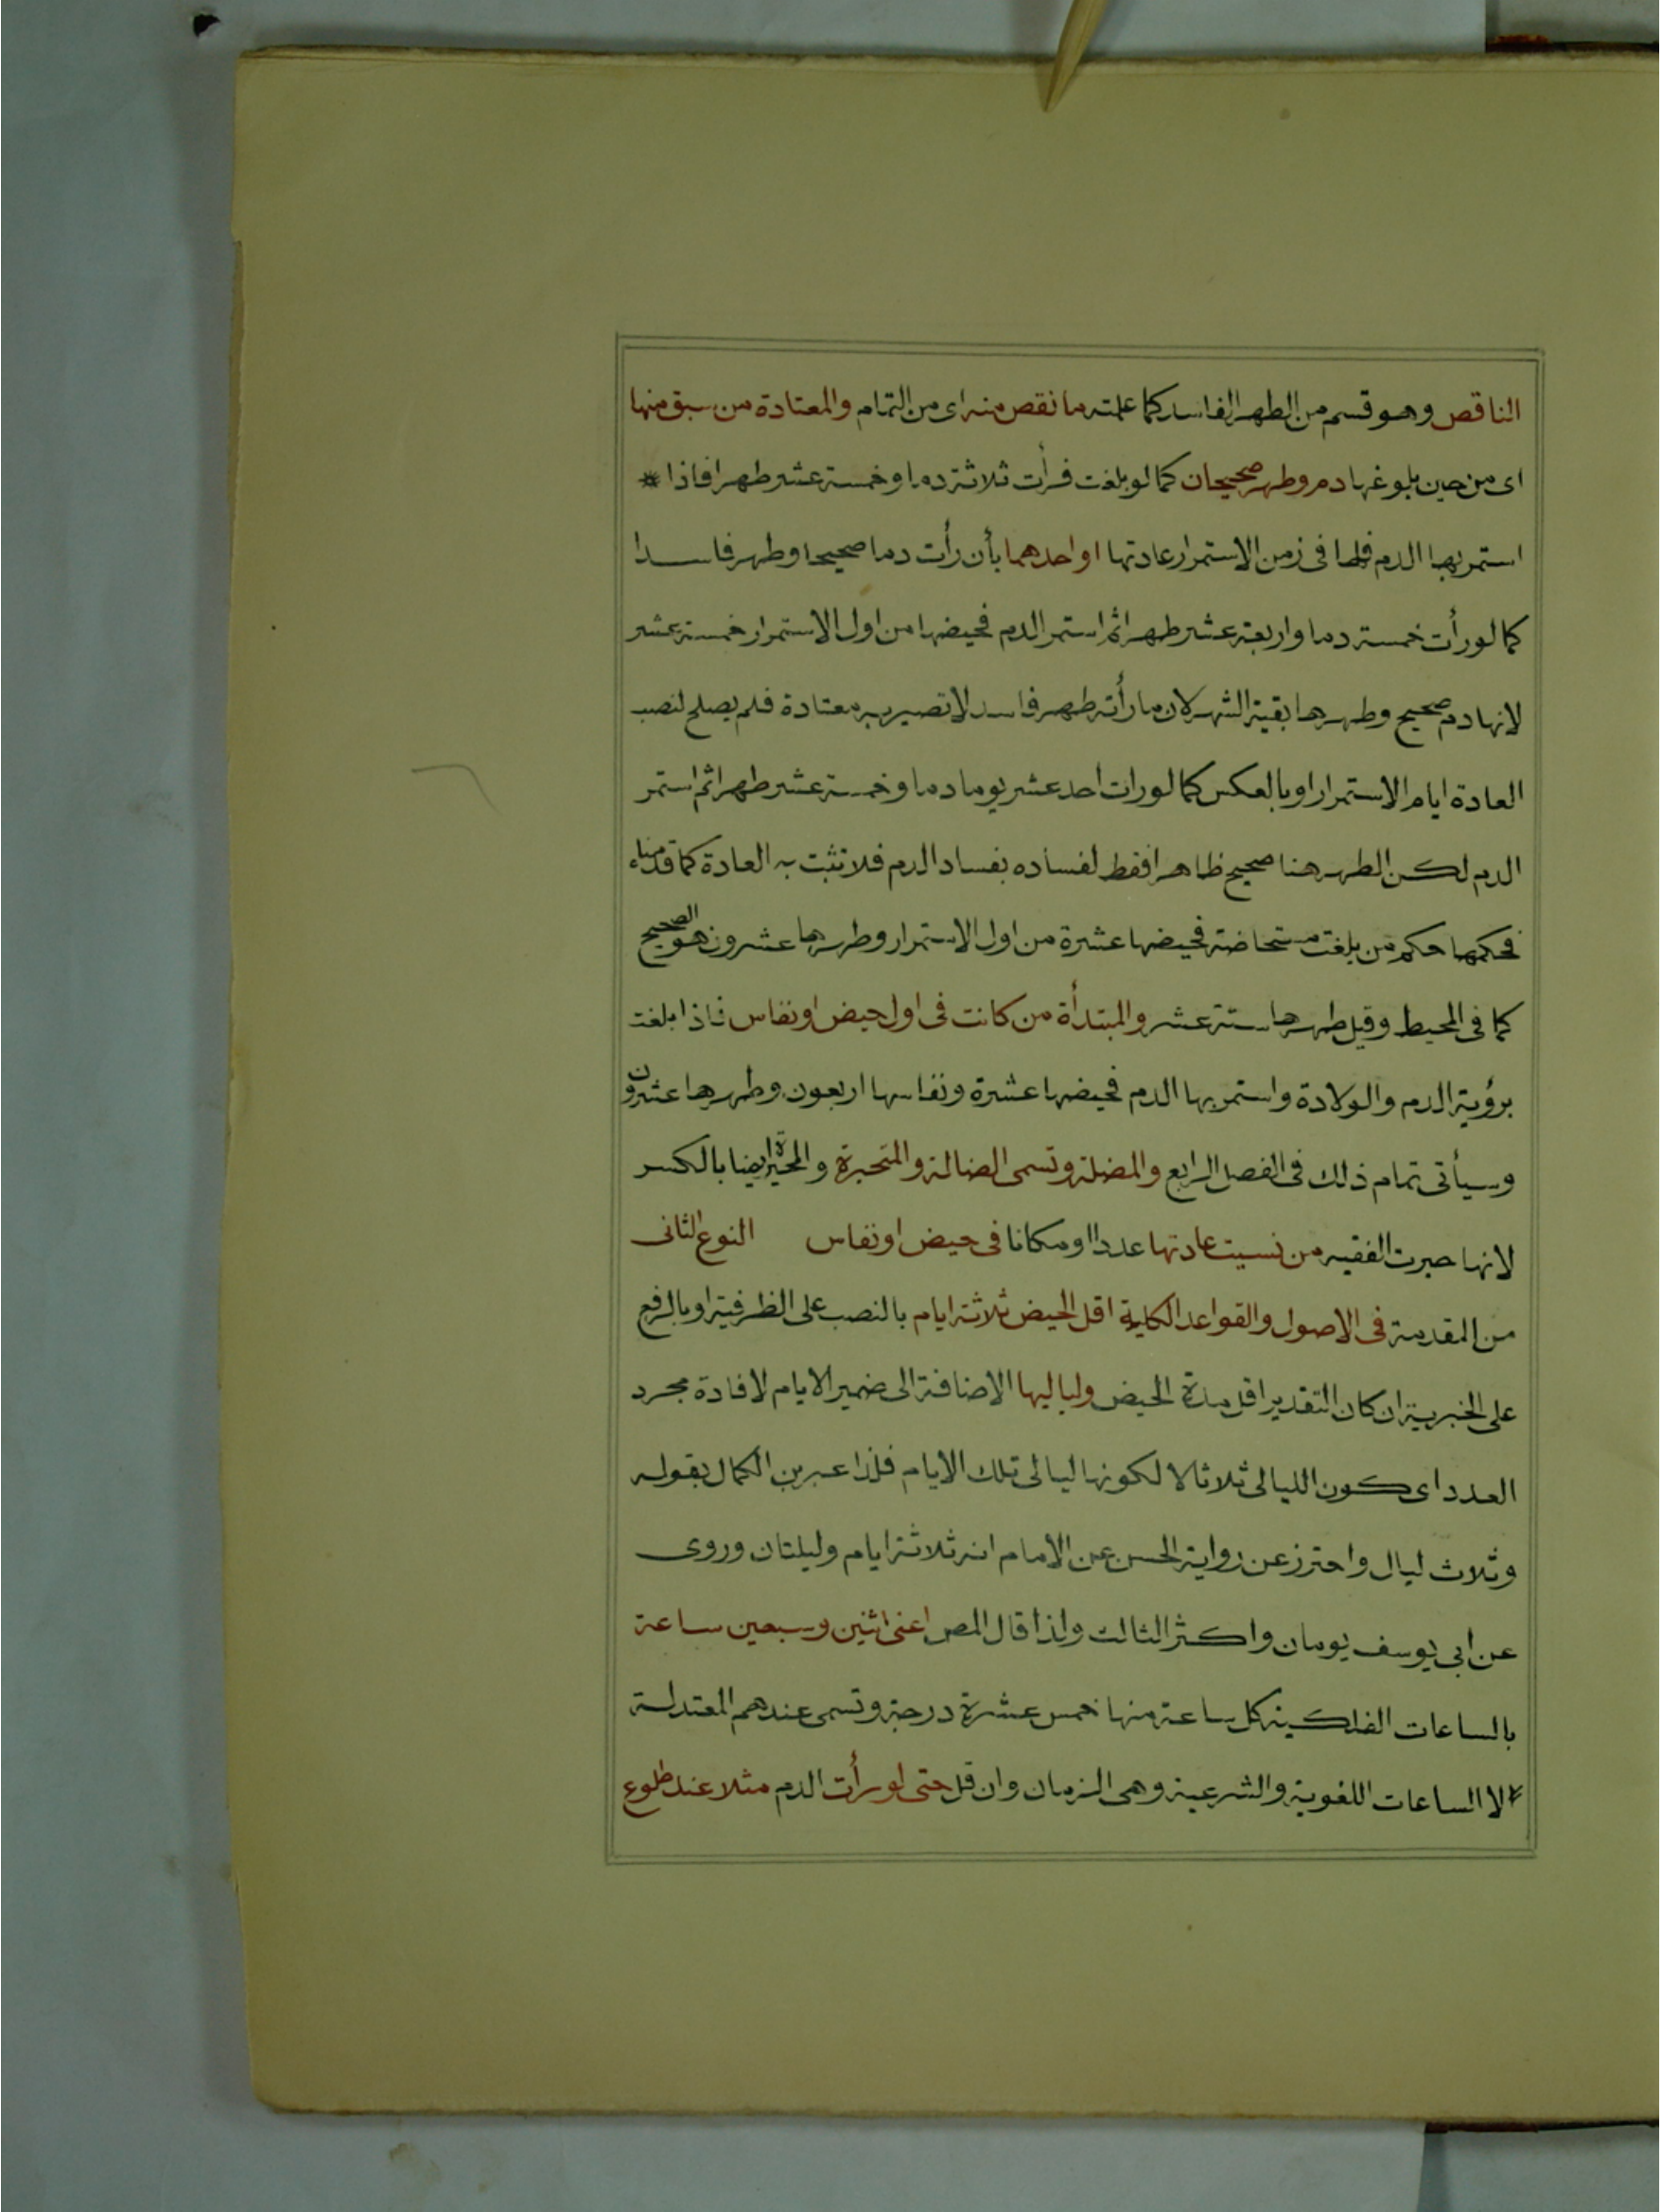 الناقص وهو قسم من الطهر الفاسد كما علمته ما نقص منه اى من التمام والمعتادة من سبق منها
اى من حين بلوغها دم وطهر صحيحان كما لو بلغت فرأت ثلاثة دما وخمسة عشر طهرا فاذا *
استمر بها الدم فلها فى زمن الاستمرار عادتها او احدهما بأن رأت دما صحيحا وطهر فاسدا
كما لو رأت خمسة دما واربعة عشر طهرا ثم استمر الدم فحيضها من اول الاستمرار خمسة عشر
لانها دم صحيح وطهرها بقية الشهر لان ما رأته طهر فاسد لا تصير به معتادة فلم يصلح لنصب
العادة ايام الاستمرار او بالعكس كما لو رات احد عشر يوما دما وخمسة عشر طهرا ثم استمر
الدم لكن الطهر هنا صحيح ظاهرا فقط لفساده بفساد الدم فلا تثبت به العادة كما قدمناه
فحكمها حكم من بلغت مستحاضة فحيضها عشرة من اول الاستمرار وطهرها عشرون هو الصحيح
كما فى المحيط وقيل طهرها ستة عشر والمبتدأة من كانت فى اول حيض او نفاس فاذا بلغت
برؤية الدم والولادة واستمر بها الدم فحيضها عشرة ونفاسها اربعون وطهرها عشرون
وسيأتى تمام ذلك فى الفصل الرابع والمضلة وتسمى الضالة والمتحيرة والمحيرة ايضا بالكسر
لانها حيرت الفقيه من نسيت عادتها عددا او مكانا فى حيض او نفاس النوع الثانى
من المقدمة فى الاصول والقواعد الكلية اقل الحيض ثلاثة ايام بالنصب على الظرفية او بالرفع
على الخبرية ان كان التقدير اقل مدة الحيض ولياليها الاضافة الى ضمير الايام لافادة مجرد
العدد اى كون الليالى ثلاثا لا لكونها ليالى تلك الايام فلذا عبر بن الكمال بقوله
وثلاث ليال واحترز عن رواية الحسن عن الامام انه ثلاثة ايام وليلتان وروى
عن ابى يوسف يومان واكثر الثالث ولذا قال المص اعنى اثنين وسبعين ساعة
بالساعات الفلكية كل ساعة منها خمس عشرة درجة وتسمى عندهم المعتدلة
لا الساعات اللغوية والشرعية وهى الزمان وان قل حتى لو رأت الدم مثلا عند طلوع